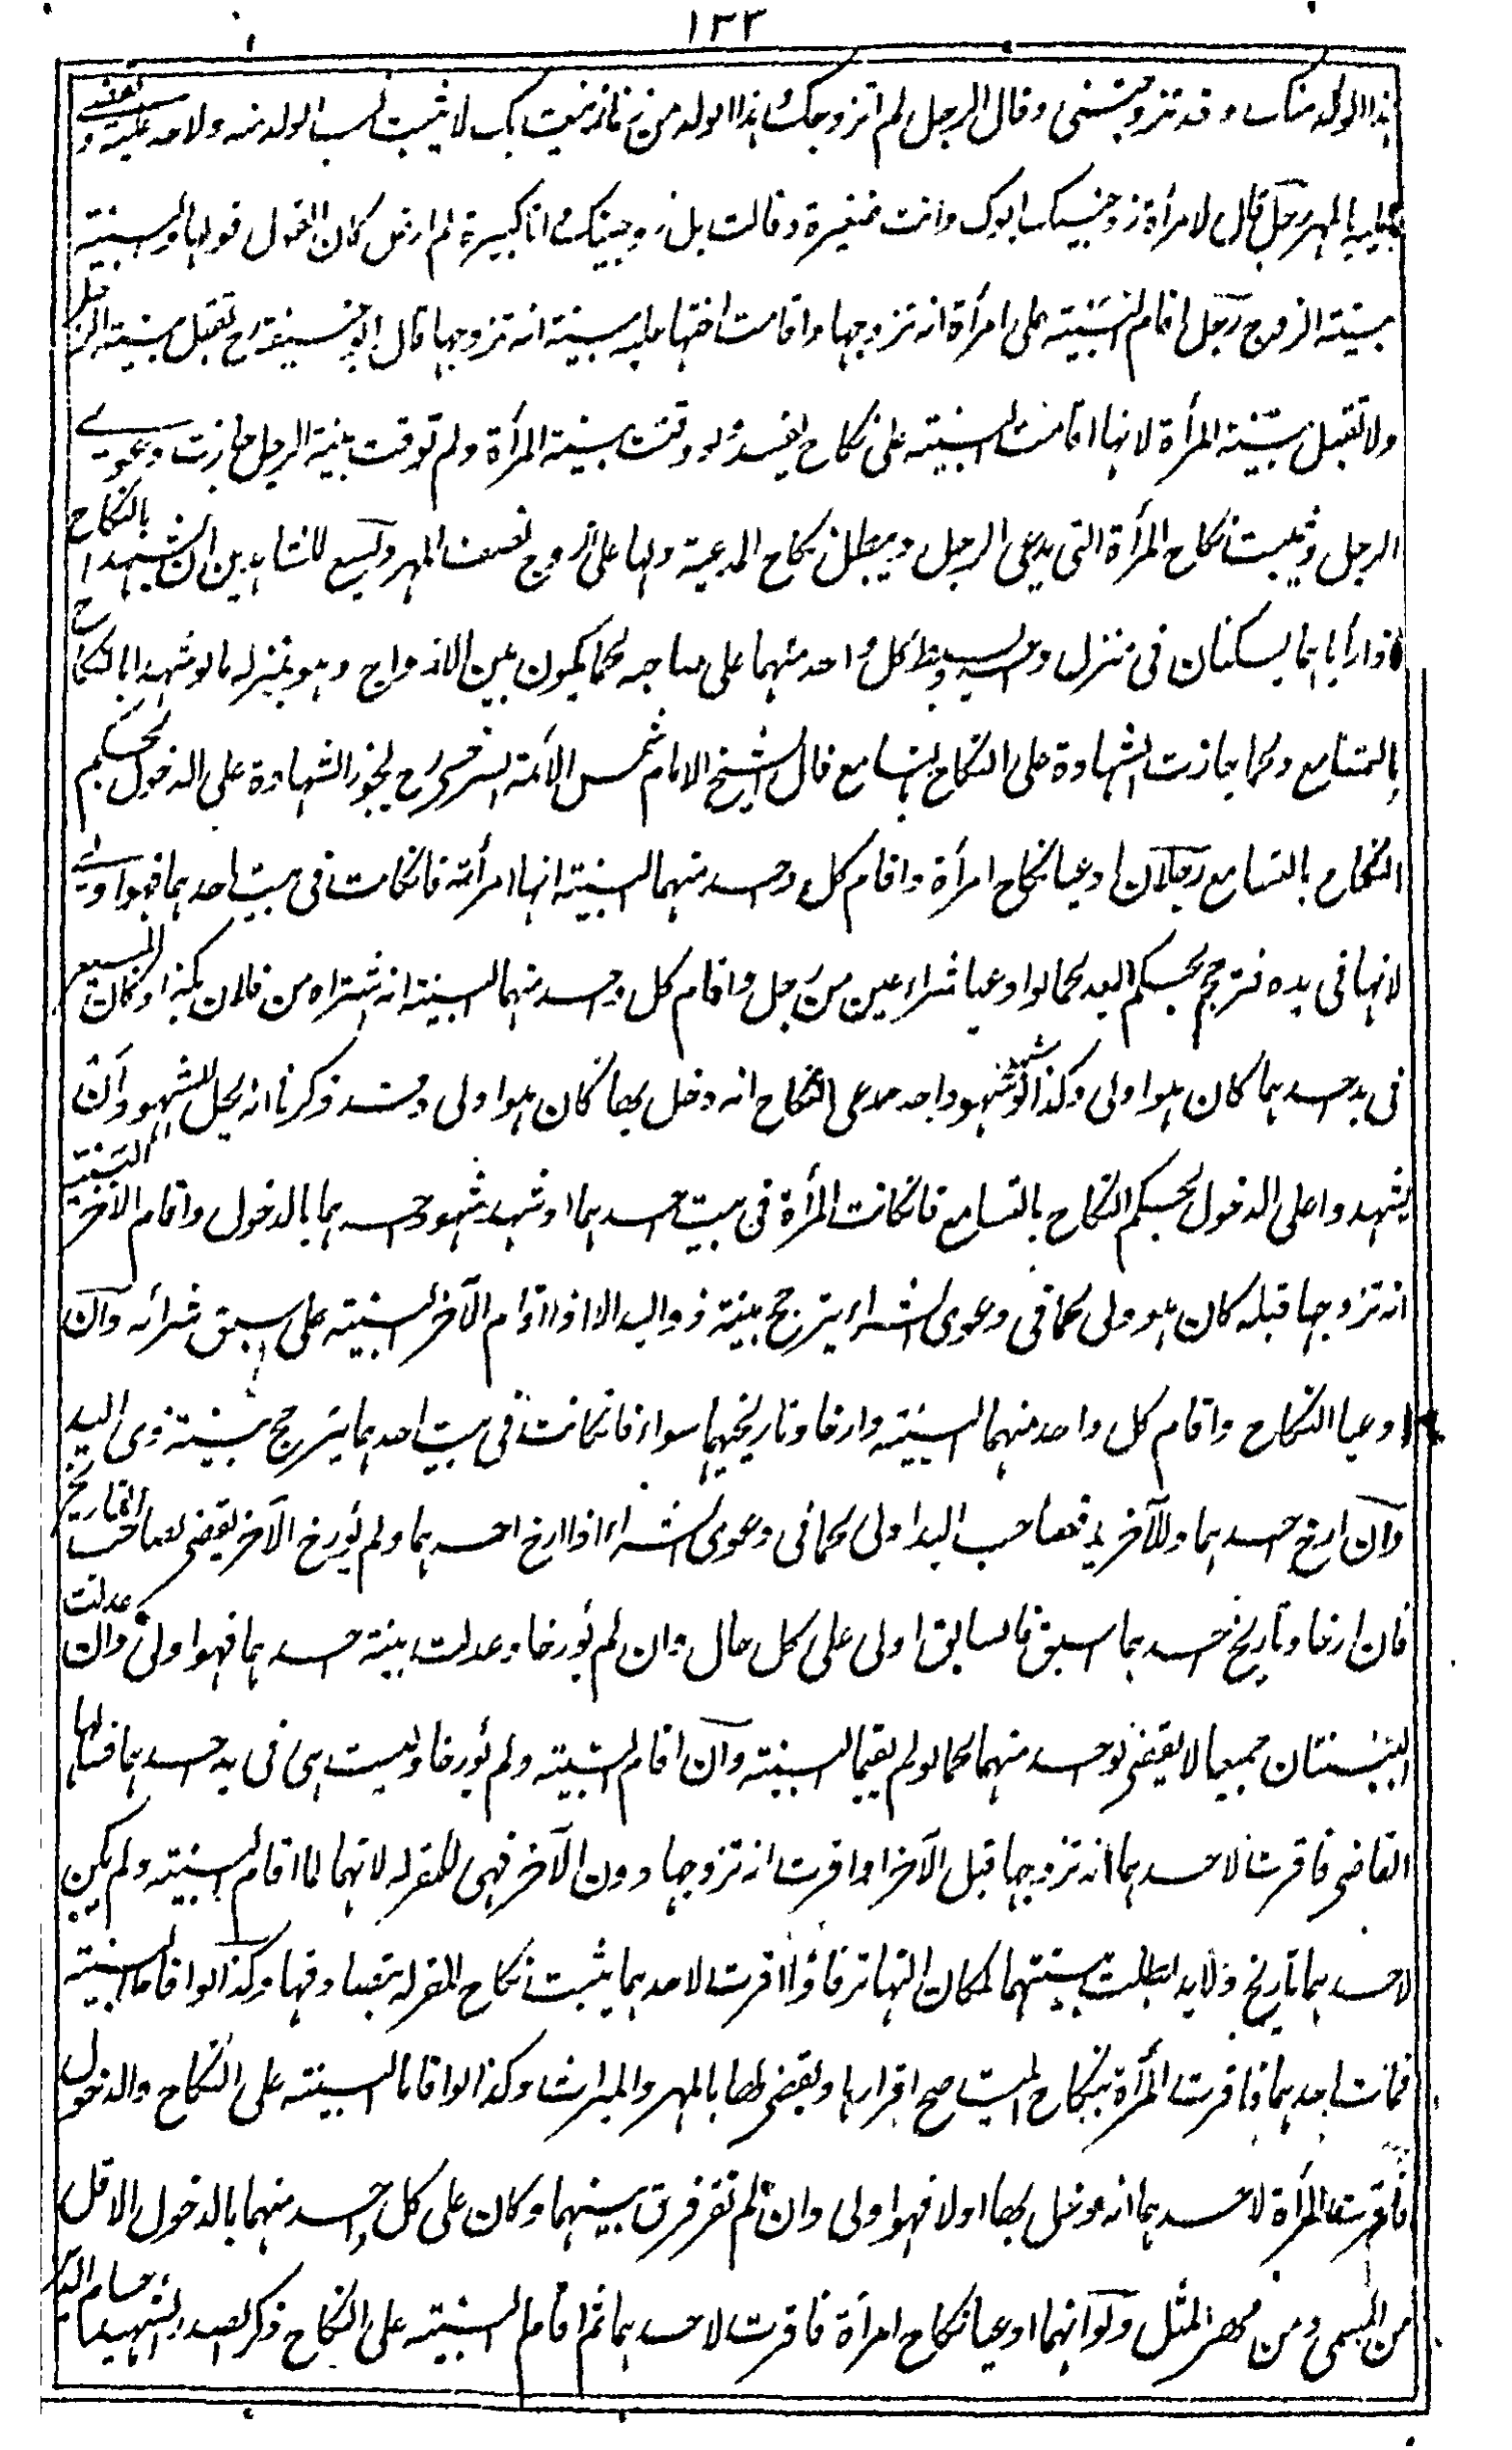 ١٣٣
هذا الولد منك وقد تزوجتنى وقال الرجل لم اتزوجك هذا الولد من زنا زنيت بك لا يثبت نسب الولد منه ولا حد عليه و
عليه بالمهر رجل قال لامرأة زوجنيك ابوك وانت صغيرة وقالت بل زوجنيك وانا كبيرة لم ارض كان القول قولها والبينة
بينة الزوج رجل اقام البينة على امرأة انه تزوجها واقامت اختها عليه بينة انه تزوجها قال ابو حنيفة رح تقبل بينة الرجل
ولا تقبل بينة المرأة لانها اقامت البينة على نكاح يفسد ولو وقتت بينة المرأة ولم توقت بينة الرجل جازت دعوى
الرجل ويثبت نكاح المرأة التى يدعى الرجل ويبطل نكاح المدعية ولها على الزوج نصف المهر ويسع للشاهدين ان يشهدا بالنكاح
اذا رأياهما يسكنان فى منزل وينبسط كل واحد منهما على صاحبه كما يكون بين الازواج وهو بمنزلة ما لو شهدا بالنكاح
بالتسامع وكما جازت الشهادة على النكاح بالتسامع قال الشيخ الامام شمس الائمة السرخسى رح يجوز الشهادة على الدخول بحكم
النكاح بالتسامع رجلان ادعيا نكاح امرأة واقام كل واحد منهما البينة انها امرأته فان كانت فى بيت احدهما فهو اولى
لانها فى يده فترجح بحكم اليد كما لو ادعيا شراء عين من رجل واقام كل واحد منهما البينة انه اشتراه من فلان بكذا وكان المبيع
فى يد احدهما كان هو اولى وكذا لو شهد شهود احد مدعى النكاح انه دخل بها كان هو اولى وقد ذكرنا انه يحل للشهود أن
يشهدوا على الدخول بحكم النكاح بالتسامع فان كانت المرأة فى بيت احدهما او شهد شهود احدهما بالدخول واقام الآخر البينة
انه تزوجها قبله كان هو اولى كما فى دعوى الشراء يترجح بينة ذو اليد الا اذا اقام الآخر البينة على سبق شرائه وان
ادعيا النكاح واقام كل واحد منهما البينة وارخا وتاريخهما سواء فان كانت فى بيت احدهما يترجح بينة ذى اليد
وان ارخ احدهما وللآخر يد فصاحب اليد اولى كما فى دعوى الشراء اذا ارخ احدهما ولم يؤرخ الآخر يقضى لصاحب التاريخ
فان ارخا وتاريخ احدهما اسبق فالسابق اولى على كل حال وان لم يؤرخا وعدلت بينة احدهما فهو اولى وان عدلت
البينتان جميعا لا يقضى لواحد منهما كما لو لم يقيما البينة وان اقاما البينة ولم يؤرخا وليست هى فى يد احدهما فسألها
القاضى فاقرت لاحدهما انه تزوجها قبل الآخر او اقرت انه تزوجها دون الآخر فهى للمقر له لانهما لما اقاما البينة ولم يكن
لاحدهما تاريخ ولا يد بطلت بينتهما لمكان التهاتر فاذا اقرت لاحدهما يثبت نكاح المقر له بتصادقهما وكذا لو اقاما البينة
فمات احدهما فاقرت المرأة بنكاح الميت صح اقرارها ويقضى لها بالمهر والميراث وكذا لو اقاما البينة على النكاح والدخول
فاقرت المرأة لاحدهما انه دخل بها اولا فهو اولى وان لم تقر فرق بينهما وكان على كل واحد منهما بالدخول الاقل
من المسمى ومن مهر المثل ولو انهما ادعيا نكاح امرأة فاقرت لاحدهما ثم اقاما البينة على النكاح ذكر الصدر الشهيد حسام الدين